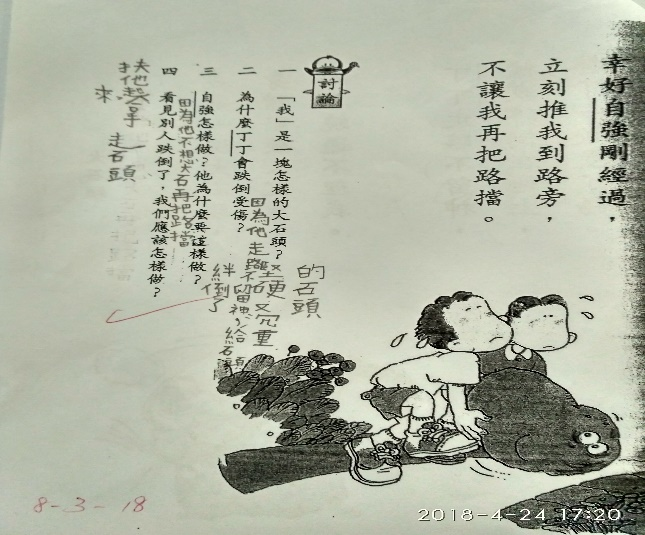 幸好自強剛經過，
立刻推我到路旁，
不讓我再把路擋。
討論
一 「我」是一塊怎樣的大石頭？
堅硬又沉重
的石頭
二 為什麼丁丁會跌倒受傷？
因為他走路不留神，給石頭
絆倒了
三 自強怎樣做？他為什麼要這樣做？
因為他不想大石再把路擋
四 看見別人跌倒了，我們應該怎樣做？
扶他起
來
走石頭
8-3-18
2018-4-24 17:20